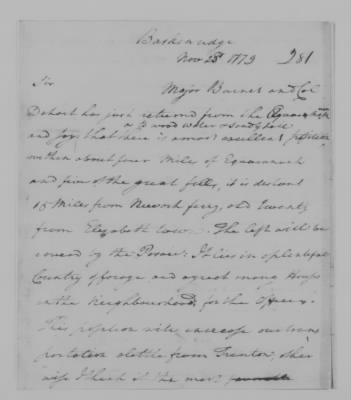 Baskenridge
Nov 23d 1779 281
Sir
Major Burnet and Col
Dehart has just returned from the
as to wood water & sandy soil
and says that there is a most excellent position
within about four Mile of Equacanack
and five of the great falls, it is distant
15 Miles from Newark ferry, and twenty
from Elizabeth town. The left will be
covered by the Passaic. It lies in a plentiful
Country of forage and a great many Houses
in the Neighbourhood for the Officers.
This position will increase our trans
portation a little from Trenton, other
wise I think it the most